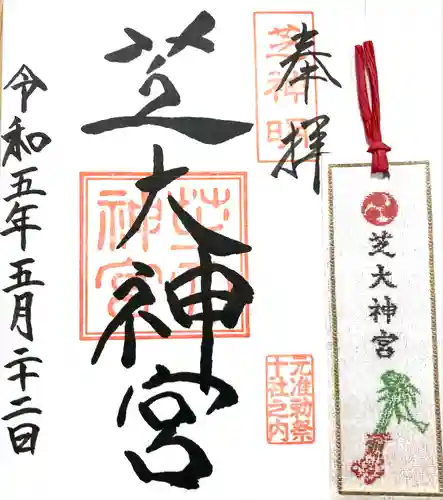 奉拝
芝神明
芝大神宮
芝大神宮
元准勅祭
十社之内
令和五年五月二十二日
芝大神宮